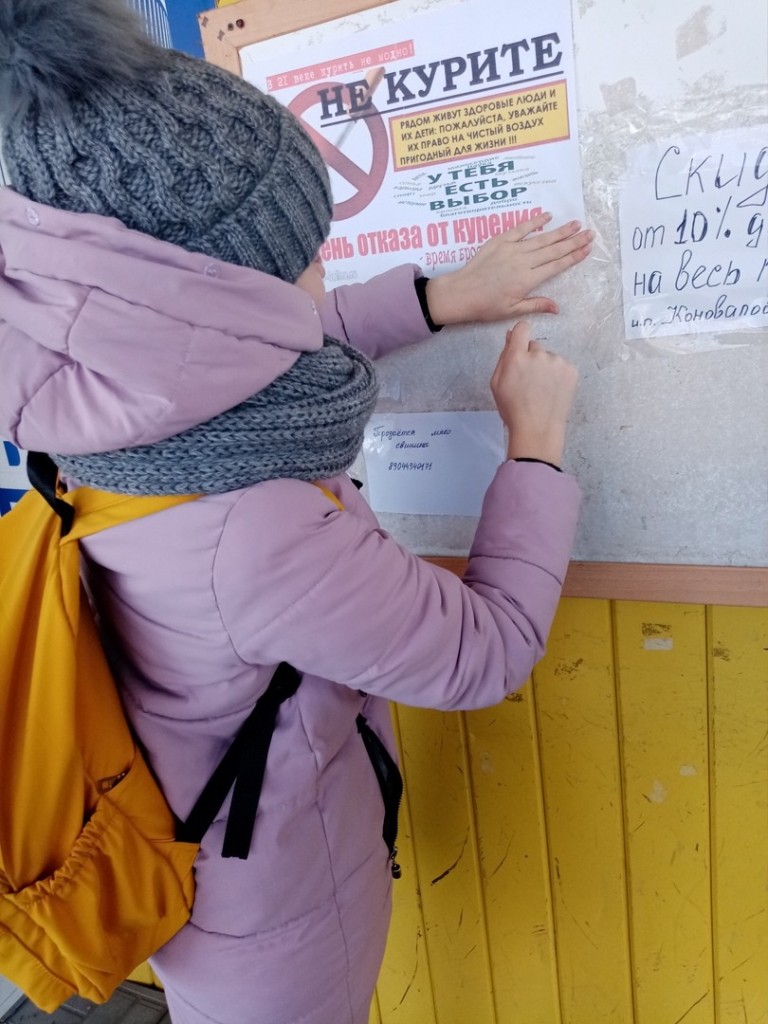 В 21 веке курить не модно!
НЕ КУРИТЕ
РЯДОМ ЖИВУТ ЗДОРОВЫЕ ЛЮДИ И
ИХ ДЕТИ: ПОЖАЛУЙСТА, УВАЖАЙТЕ
ИХ ПРАВО НА ЧИСТЫЙ ВОЗДУХ
ПРИГОДНЫЙ ДЛЯ ЖИЗНИ !!!
У ТЕБЯ
ЕСТЬ
ВЫБОР
благотворительность
ень отказа от курения
- время
Скид
от 10%
на весь
и.п. Коновалов
Продаётся мясо
свинина
89044940171